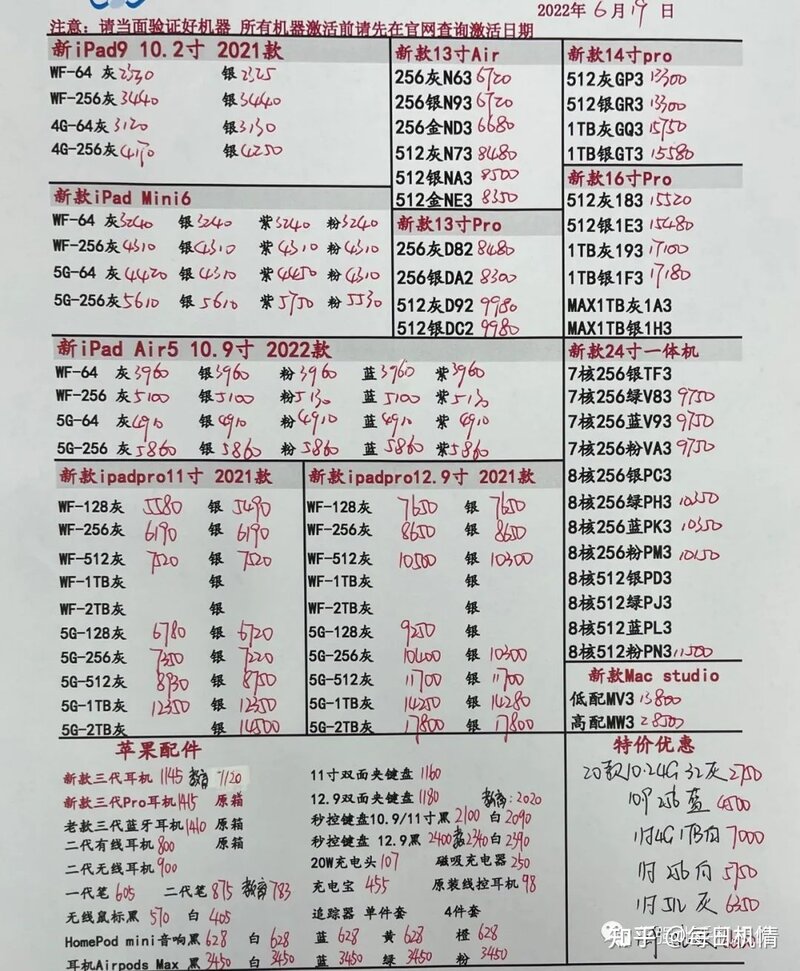 2022年6月19日
注意：请当面验证好机器 所有机器激活前请先在官网查询激活日期
新iPad9 10.2寸 2021款
WF-64 灰 银2325
WF-256灰3440 银3440
4G-64灰3120 银3130
4G-256灰 银4250
新款iPad Mini6
WF-64 灰3240 银3240 紫3240 粉3240
WF-256灰4310 银4310 紫4310 粉4310
5G-64 灰4420 银4310 紫4450 粉4310
5G-256灰5610 银5610 紫5750 粉5530
新iPad Air5 10.9寸 2022款
WF-64 灰3960 银3960 粉3960 蓝3960 紫3960
WF-256 灰5100 银5100 粉5130 蓝5100 紫5130
5G-64 灰4910 银4910 粉4910 蓝4910 紫4910
5G-256 灰5860 银5860 粉5860 蓝5860 紫5860
新款ipadpro11寸 2021款
WF-128灰 5580 银 5490
WF-256灰 6190 银 6190
WF-512灰 7520 银 7520
WF-1TB灰 银
WF-2TB灰 银
5G-128灰 6780 银 6720
5G-256灰 7350 银 7220
5G-512灰 8930 银 8750
5G-1TB灰 12350 银 12350
5G-2TB灰 银 14500
新款ipadpro12.9寸 2021款
WF-128灰 7650 银 7650
WF-256灰 8650 银 8650
WF-512灰 10500 银 10300
WF-1TB灰 银
WF-2TB灰 银
5G-128灰 9250 银
5G-256灰 10400 银 10300
5G-512灰 11700 银 11700
5G-1TB灰 14250 银 14280
5G-2TB灰 17800 银 17800
新款13寸Air
256灰N63 6720
256银N93 6720
256金ND3 6680
512灰N73 8480
512银NA3 8500
512金NE3 8350
新款13寸Pro
256灰D82 8480
256银DA2 8300
512灰D92 9980
512银DC2 9980
新款14寸pro
512灰GP3 13300
512银GR3 13300
1TB灰GQ3 15750
1TB银GT3 15580
新款16寸Pro
512灰183 15520
512银1E3 15480
1TB灰193 17100
1TB银1F3 17180
MAX1TB灰1A3
MAX1TB银1H3
新款24寸一体机
7核256银TF3
7核256绿V83 9750
7核256蓝V93 9750
7核256粉VA3 9750
8核256银PC3
8核256绿PH3 10350
8核256蓝PK3 10350
8核256粉PM3 10150
8核512银PD3
8核512绿PJ3
8核512蓝PL3
8核512粉PN3 11500
新款Mac studio
低配MV3 13800
高配MW3 28500
苹果配件
新款三代耳机 1145 教育 1120
新款三代Pro耳机1415 原箱
老款三代蓝牙耳机1410 原箱
二代有线耳机800 原箱
二代无线耳机900
一代笔 605 二代笔 875 教育783
无线鼠标黑 570 白 405
HomePod mini音响黑628 白 628 蓝 628 黄 628 橙 628
耳机Airpods Max 黑3450 白 3450 蓝 3450 绿 3450 粉 3450
11寸双面夹键盘 1160
12.9双面夹键盘 1180 教育：2020
秒控键盘10.9/11寸黑 2100 白2090
秒控键盘 12.9黑 2400 教2340 白2590
20W充电头 107 磁吸充电器 250
充电宝 455 原装线控耳机98
追踪器 单件套 4件套
特价优惠
20款10.2 4G 32灰2750
256 蓝 4500
旧4G 1TB白 7000
旧 256 白 5750
旧 512 灰 6350
知乎 @每日机情